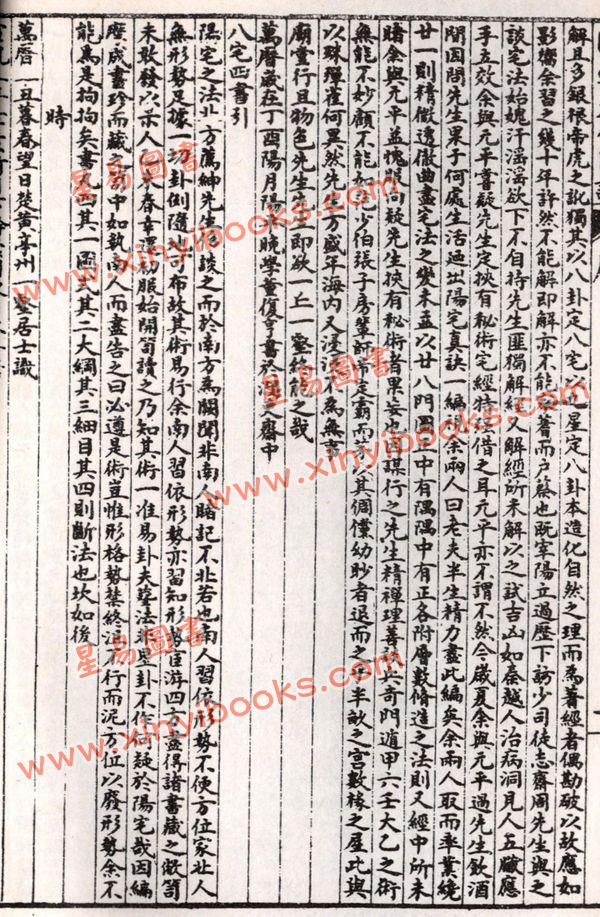 解且多銀根帝虎之訛獨其以八卦定八宅以星定八卦本造化自然之理而為著經者偶勘破以故應如
影嚮余習之幾十年許然不能解即解亦不能著而戶簽也既宰陽立過歷下訪少司徒志齋周先生與之
談宅法始媿汗滛滛欲下不自持先生匪獨解經又解經所未解以之試吉凶如秦越人治病洞見人五臟應
手立效余與元平喜疑先生定挾有秘術宅經特假借之耳元平亦不謂不然今歲夏余與元平過先生飲酒
閒因問先生果于何處生活廼出陽宅真訣一編示余兩人曰老夫半生精力盡此編矣余兩人取而卒業繞
廿一則精微透徹曲盡宅法之變未益以廿八門圖圖中有隅隅中有正各附層數脩造之法則又經中所未
睹余與元平益媿服向疑先生挾有秘術者果妄也因謀行之先生精禪理善談兵奇門遁甲六壬大乙之術
無能不妙顧不能如少伯張子房輩
以珠彈雀何異然先生方盛年海内又
廟堂行且物色先生先生即欲一丘一壑終能之哉
萬曆歲在丁酉陽月陽晚學董復亨書於齋中
八宅四書引
陽宅之法北方薦紳先生多談之而於南方為闊聞非南人賠記不北若也南人習依形勢不便方位家北人
無形勢足據一切卦倒隨可布故其術易行余南人習依形勢亦習知形勢宦游四方盡得諸書藏之敝笥
未敢發以示人今來春幸還初服始開笥讀之乃知其術一准易卦夫藝法非聖卦不作何疑於陽宅哉因編
歷成書珍而藏笥中如執南人而盡告之曰必遵是術豈惟形格勢禁終泪不行而泥方位以廢形勢余不
能為是拘拘矣書凡四其一圖式其二大綱其三細目其四則斷法也坎如後
時
萬曆 一丑暮春望日楚黃亭州 壑居士識
星易圖書
www.xinyibooks.com
星易圖書
www.xinyibooks.com
星易圖書
www.xinyibooks.com